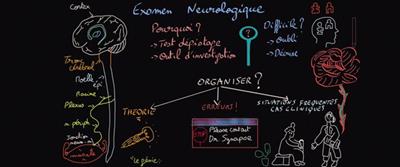 Cortex
Examen Neurologique
Pourquoi ?
→ Test dépistage
→ Outil d'investigation
?
Difficile ?
→ Oubli
→ Décousu
Tronc
cérébral
Moelle
épi
Racine
Plexus
n. périph
Jonction
neuro-m
muscle
ORGANISER ?
THEORIE
ERREURS !
SITUATIONS FREQUENTES
CAS CLINIQUES
STOP
Please contact
Dr Synapse
"le génie"